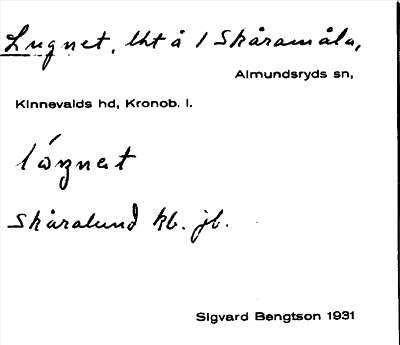 Lugnet, lht å 1 Skåramåla,
Almundsryds sn,
Kinnevalds hd, Kronob. l.
Skåralund kb. jb.
Sigvard Bengtson 1931